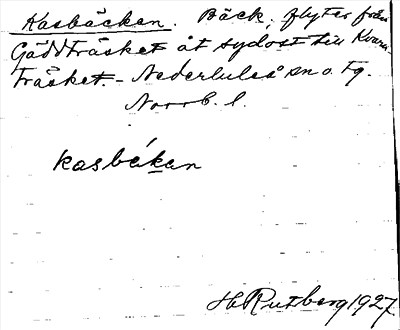 Kasbäcken. Bäck, flyter från
Gäddträsket åt sydost till Kvarn-
träsket. - Nederluleå sn o. tg.
Norrb. l.
kasbákan
H Rutberg 1927